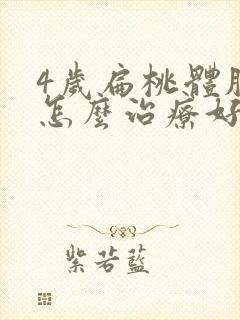 4歲扁桃體肥
怎麼治療好
紫若藍